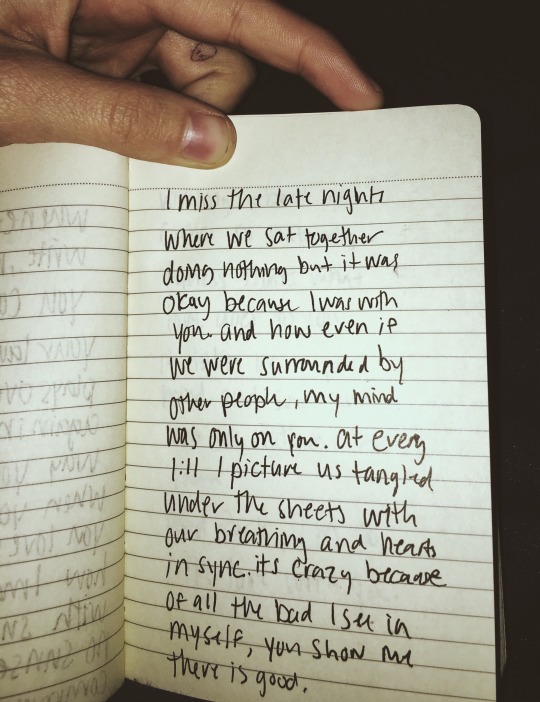 I miss the late nights
where we sat together
doing nothing but it was
okay because I was with
you. and how even if
we were surrounded by
other people, my mind
was only on you. at every
1:11 I picture us tangled
under the sheets with
our breathing and hearts
in sync. its crazy because
of all the bad I see in
myself, you show me
there is good.